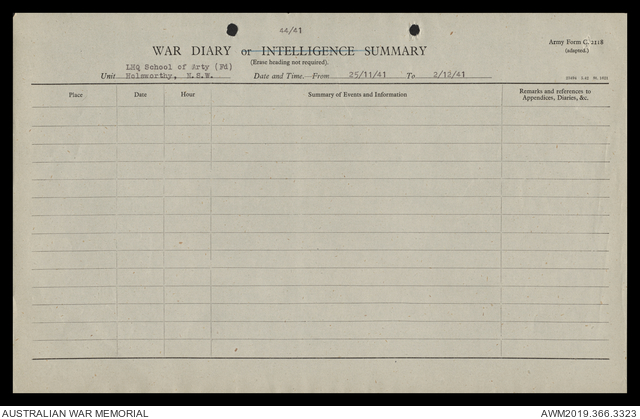 44/41
WAR DIARY or INTELLIGENCE SUMMARY
(Erase heading not required).
Army Form C. 2118
(adapted.)
LHQ School of Arty (Fd)
Unit Holsworthy, N.S.W. Date and Time.—From 25/11/41 To 2/12/41
Place Date Hour Summary of Events and Information Remarks and references to
Appendices, Diaries, &c.
AUSTRALIAN WAR MEMORIAL AWM2019.366.3323